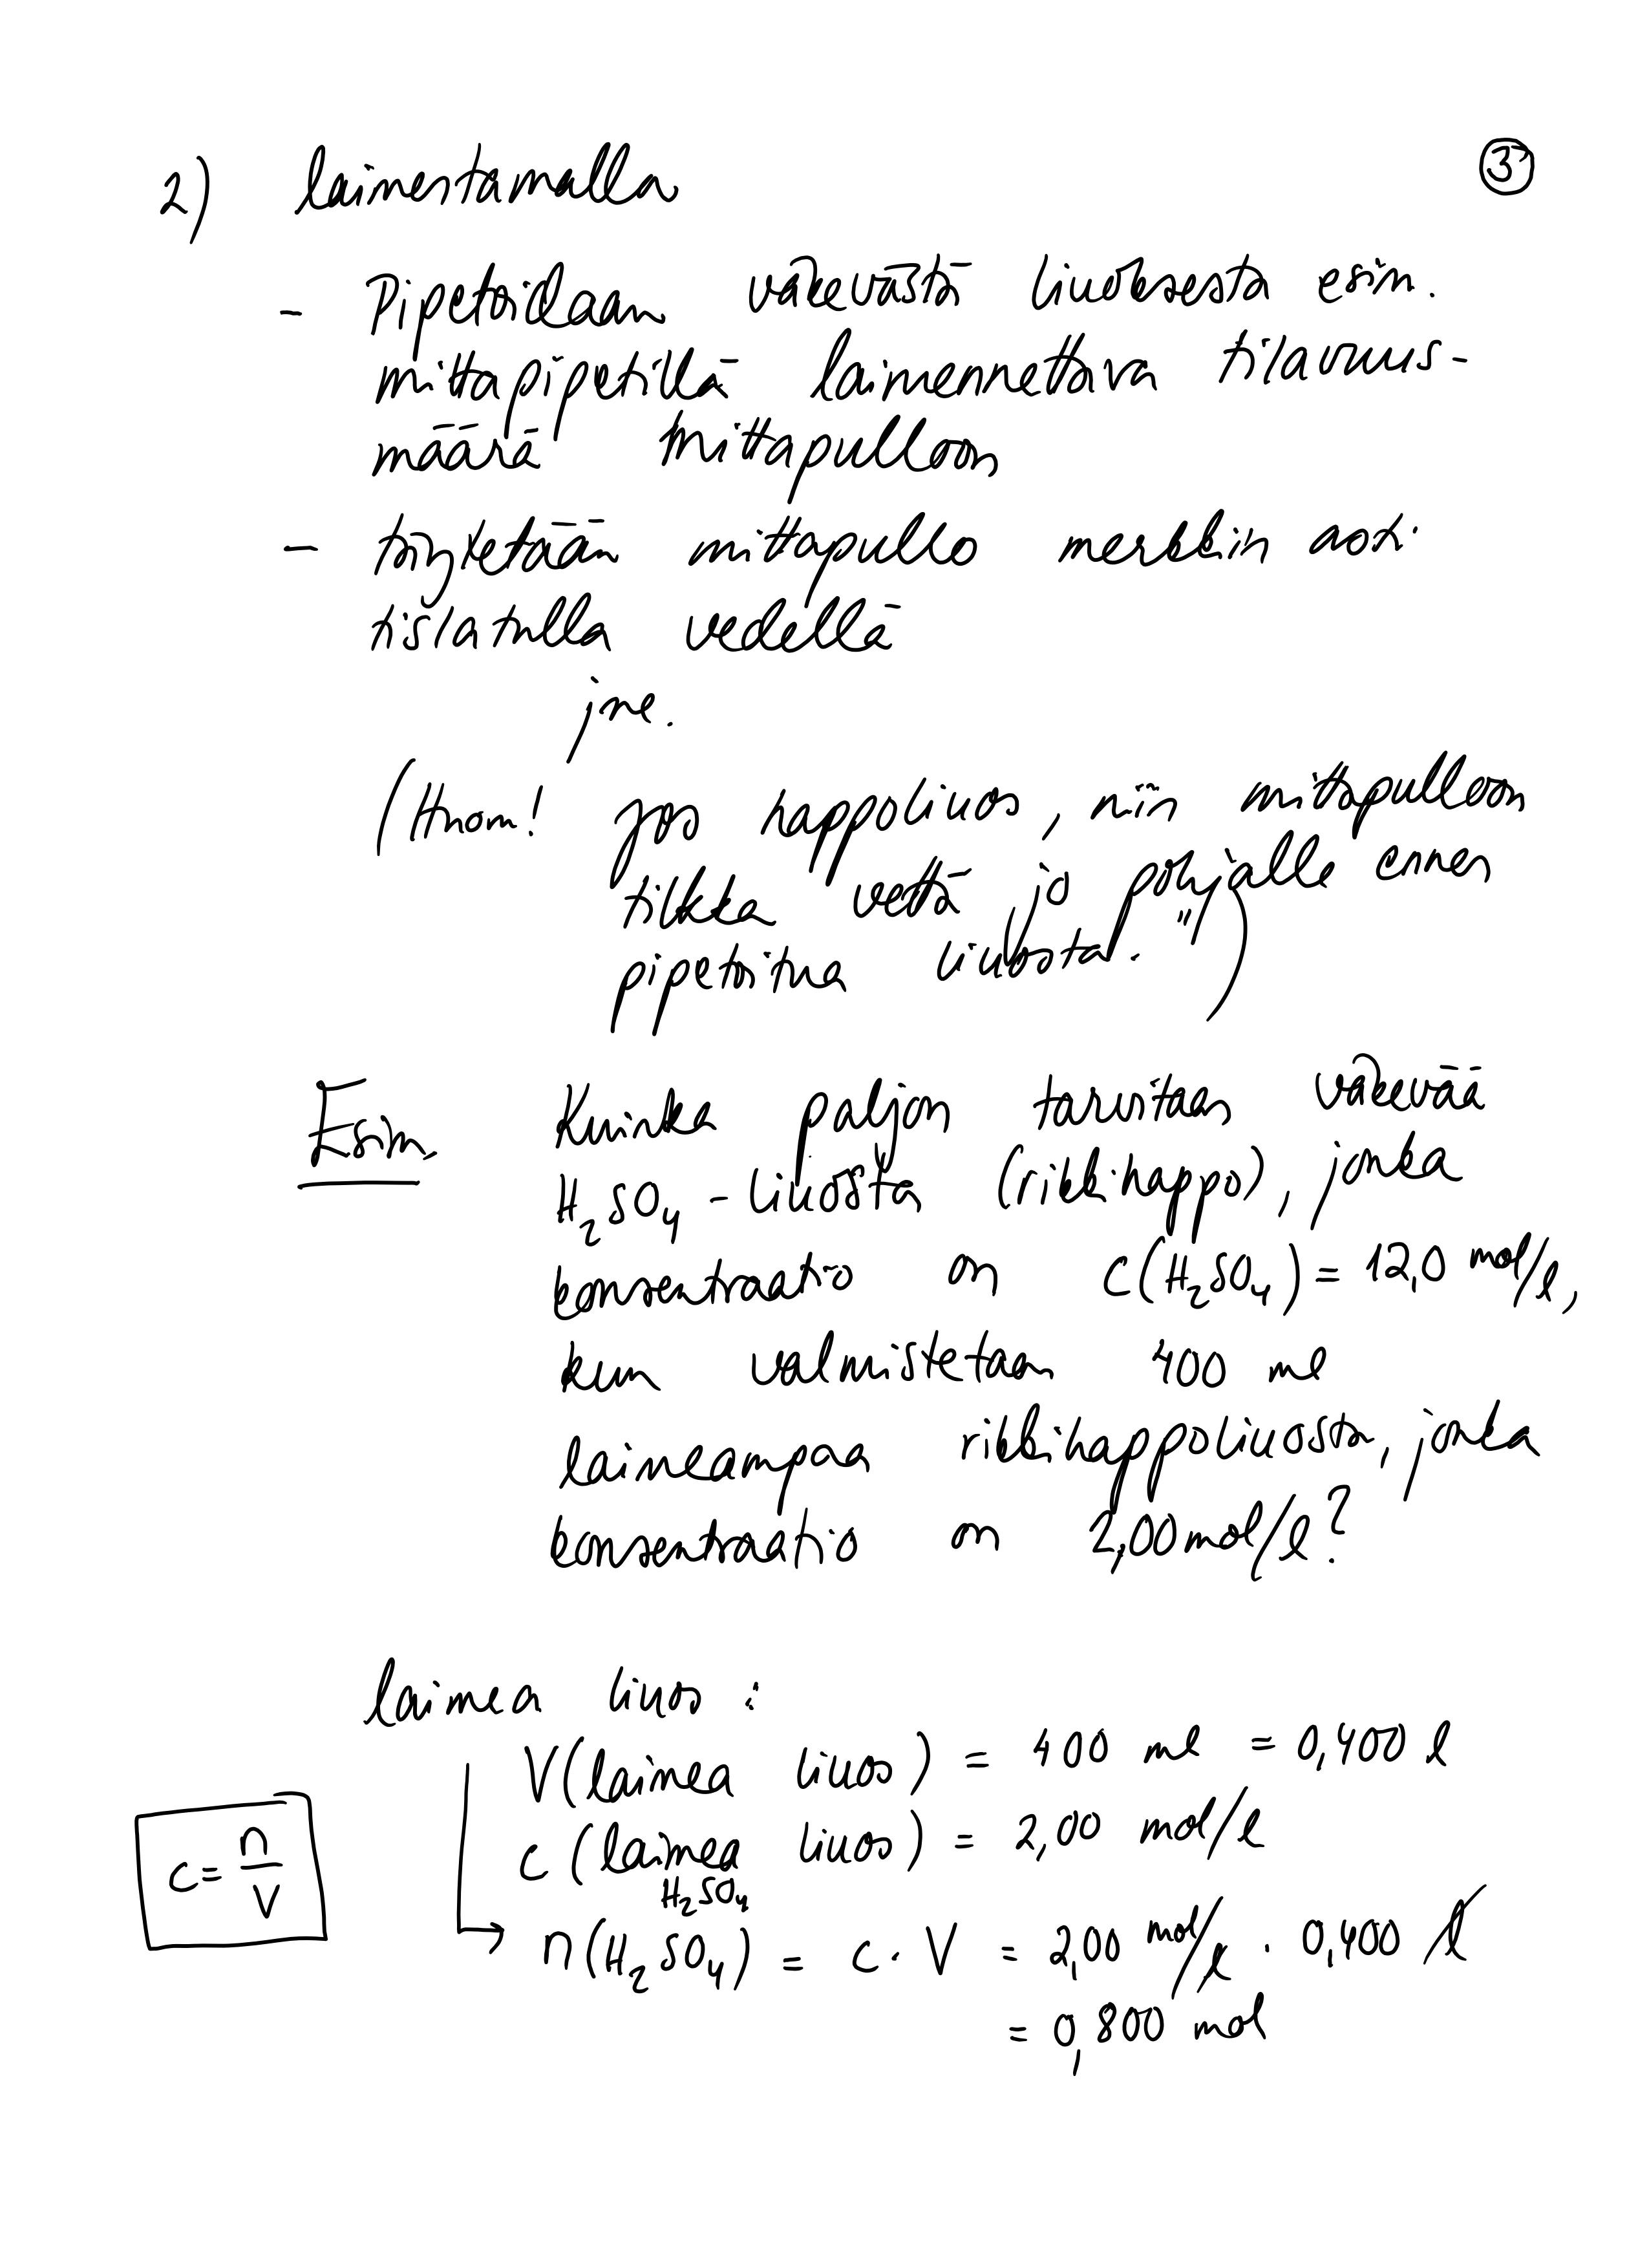 ③
2) laimentamalla
- Pipetoidaan väkevästä liuoksesta esim.
mittapipetillä laimennettava tilavuus-
määrä mittapulloon
- täytetään mittapullo merkkiin asti
tislatulla vedellä
jne.
(Huom! Jos happoliuos, niin mittapulloon
tilkka vettä jo "pohjalle ennen
pipetoitua liuosta.")
Esim. Kuinka paljon tarvitaan väkevää
H₂SO₄-liuosta (rikkihappo), jonka
konsentraatio on c(H₂SO₄) = 12,0 mol/l,
kun valmistetaan 400 ml
laimeampaa rikkihappoliuosta, jonka
konsentraatio on 2,00 mol/l?
laimea liuos:
V(laimea liuos) = 400 ml = 0,400 l
c(laimea liuos) = 2,00 mol/l
H₂SO₄
c = n/V
n(H₂SO₄) = c · V = 2,00 mol/l · 0,400 l
= 0,800 mol